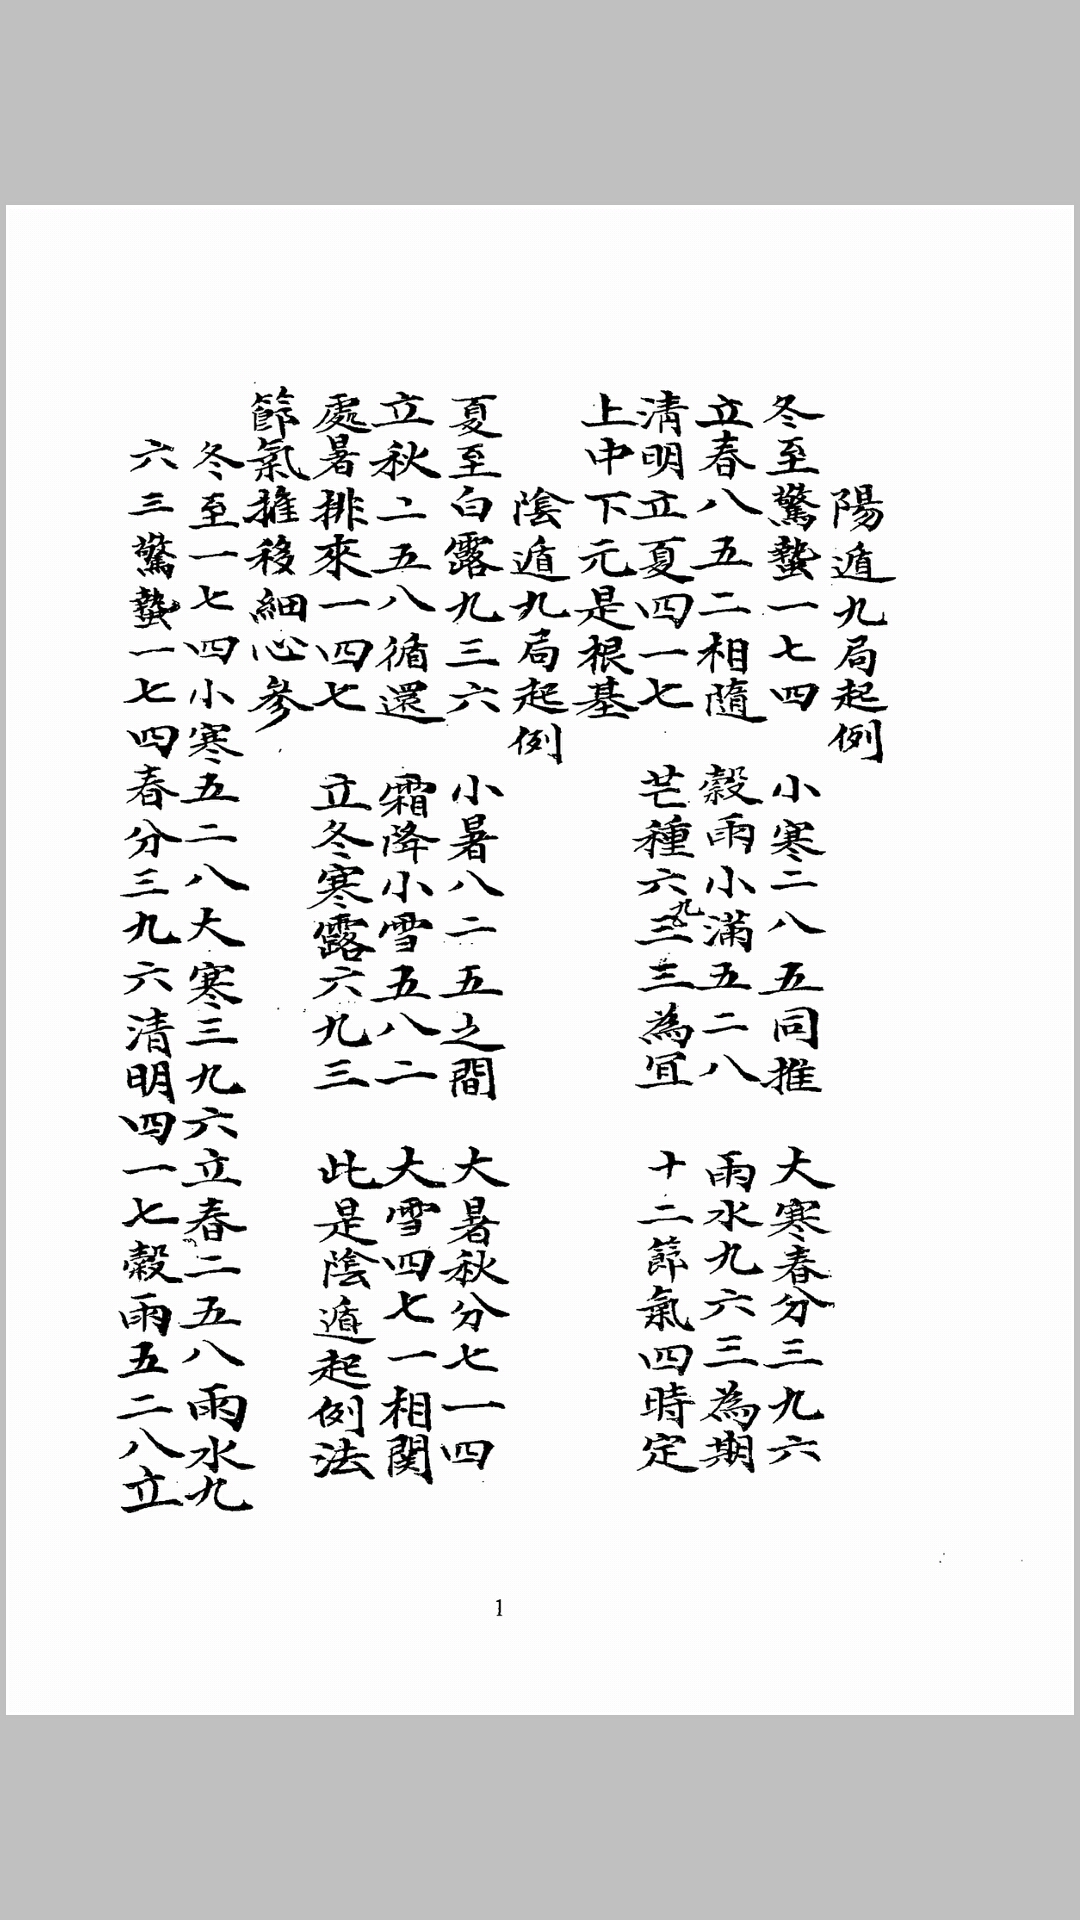 陽遁九局起例
冬至驚蟄一七四 小寒二八五同推 大寒春分三九六
立春八五二相隨 穀雨小滿五二八 雨水九六三為期
清明立夏四一七 芒種六三三為宜 十二節氣四時定
九
上中下元是根基
陰遁九局起例
夏至白露九三六 小暑八二五之間 大暑秋分七一四
立秋二五八循還 霜降小雪五八二 大雪四七一相関
處暑排來一四七 立冬寒露六九三 此是陰遁起例法
節氣推移細心參
冬至一七四小寒五二八大寒三九六立春二五八雨水九
六三驚蟄一七四春分三九六清明四一七穀雨五二八立
1